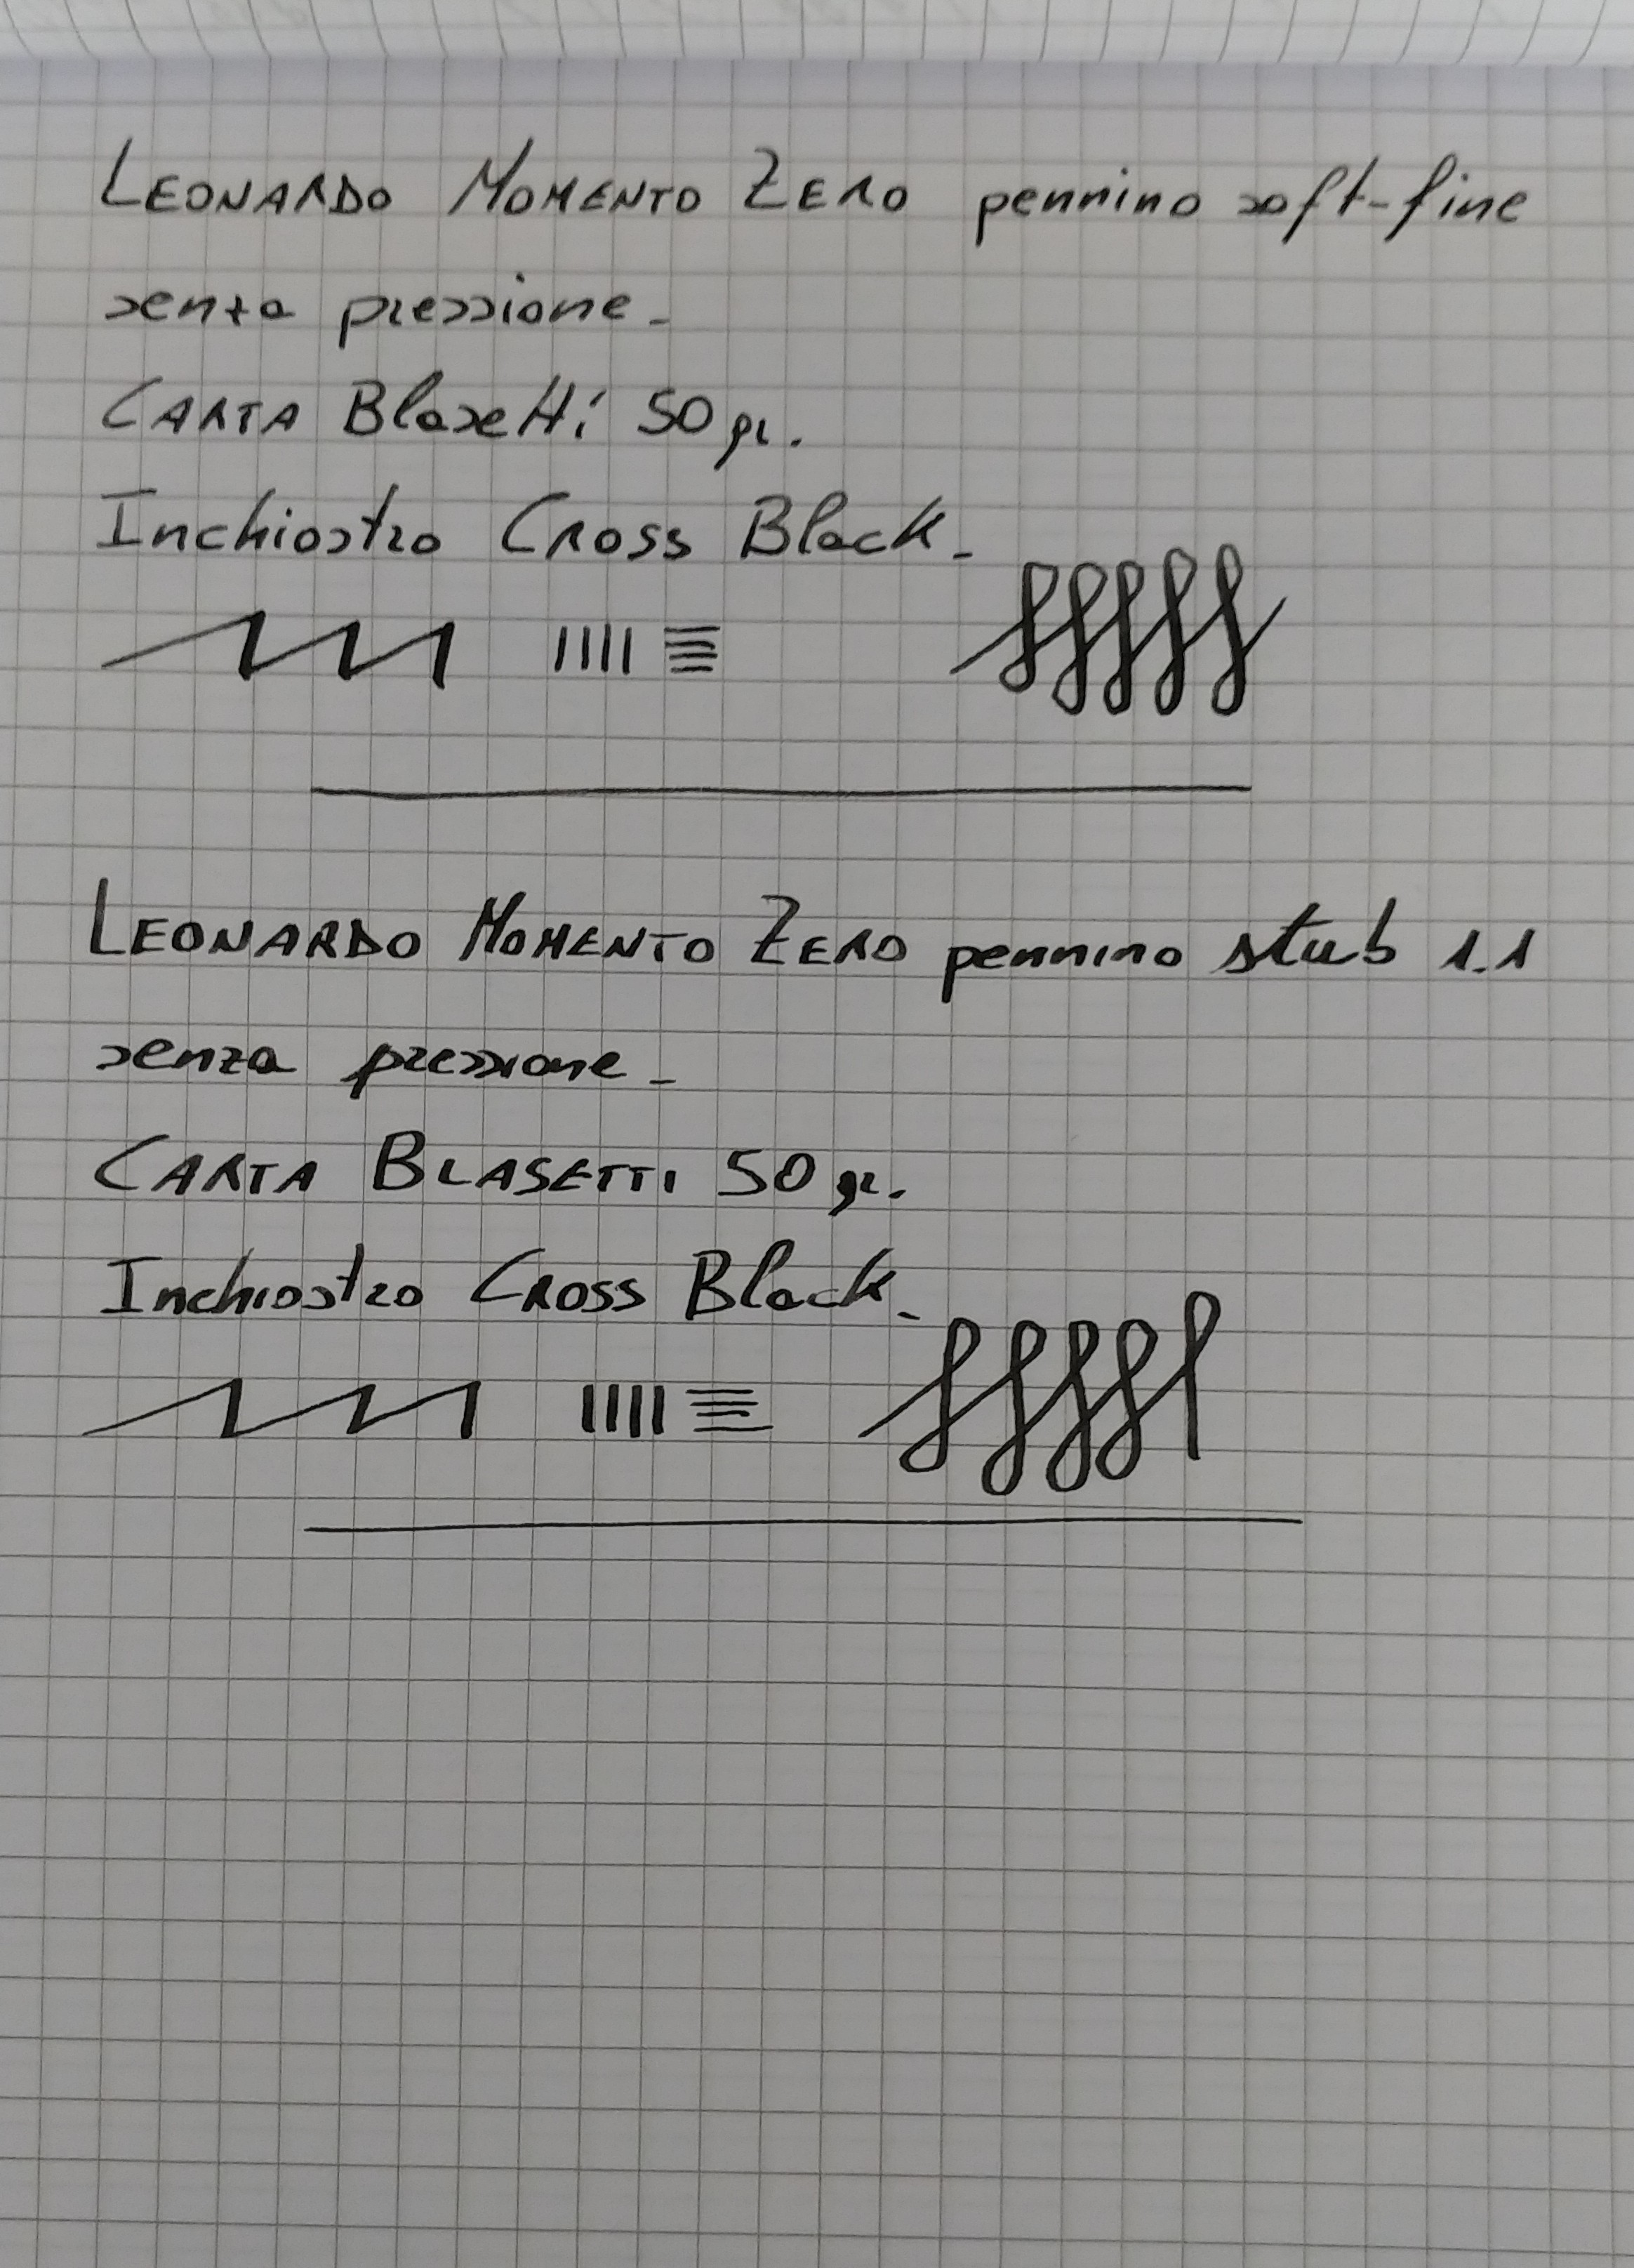 LEONARDO MOMENTO ZERO pennino soft-fine
senza pressione.
CARTA Blasetti 50 gr.
Inchiostro CROSS Black.
LEONARDO MOMENTO ZERO pennino stub 1.1
senza pressione.
CARTA BLASETTI 50 gr.
Inchiostro CROSS Black.